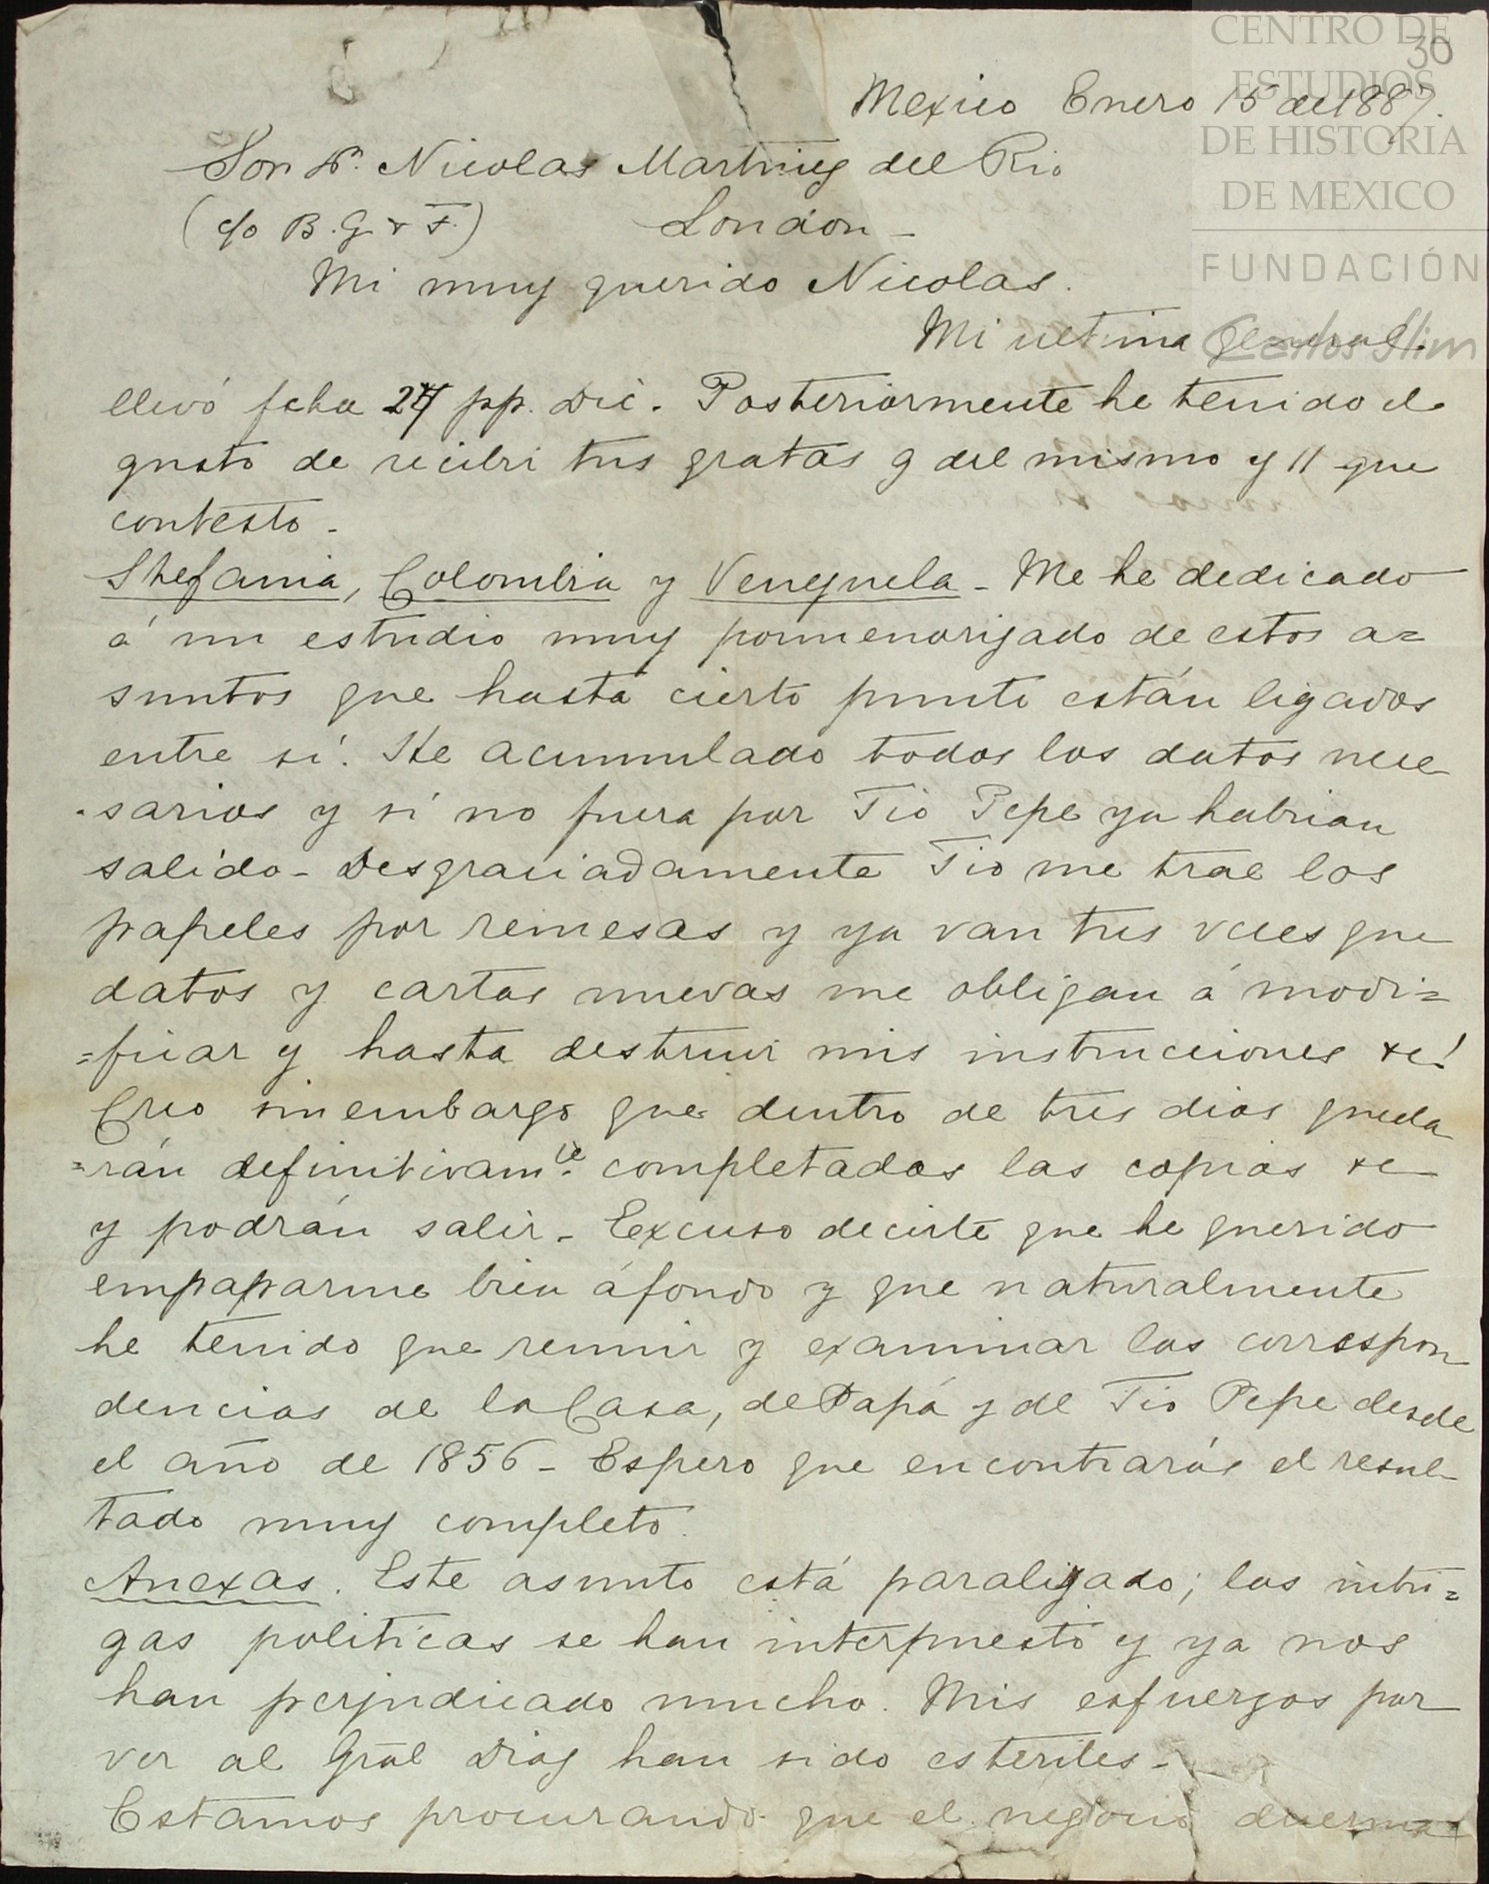 CENTRO DE
ESTUDIOS
DE HISTORIA
DE MEXICO
FUNDACIÓN
Carlos Slim
30
Mexico Enero 15 de 1887.
Sor Dn. Nicolas Martinez del Rio
(c/o B. G. & F.) London -
Mi muy querido Nicolas.
Mi ultima general
llevó fcha 24 pp. Dic. Posteriormente he tenido el
gusto de recibir tus gratas 9 del mismo y 11 que
contesto -
Stefania, Colombia y Venezuela - Me he dedicado
á un estudio muy pormenorizado de estos a=
suntos que hasta cierto punto están ligados
entre sí. He acumulado todos los datos nece
sarios y si no fuera por Tio Pepe ya habrian
salido - Desgraciadamente Tio me trae los
papeles por remesas y ya van tres veces que
datos y cartas nuevas me obligan á modi=
=ficar y hasta destruir mis instrucciones &c!
Creo sin embargo que dentro de tres dias queda
=rán definitivamte completadas las copias &c
y podrán salir - Excuso decirte que he querido
empaparme bien á fondo y que naturalmente
he tenido que reunir y examinar las correspon
dencias de la Casa, de Papá y de Tio Pepe desde
el año de 1856 - Espero que encontrarás el resul-
tado muy completo.
Anexas. Este asunto está paralizado; las intri=
gas politicas se han interpuesto y ya nos
han perjudicado mucho. Mis esfuerzos por
ver al Gral Diaz han sido esteriles -
Estamos procurando que el negocio duerma